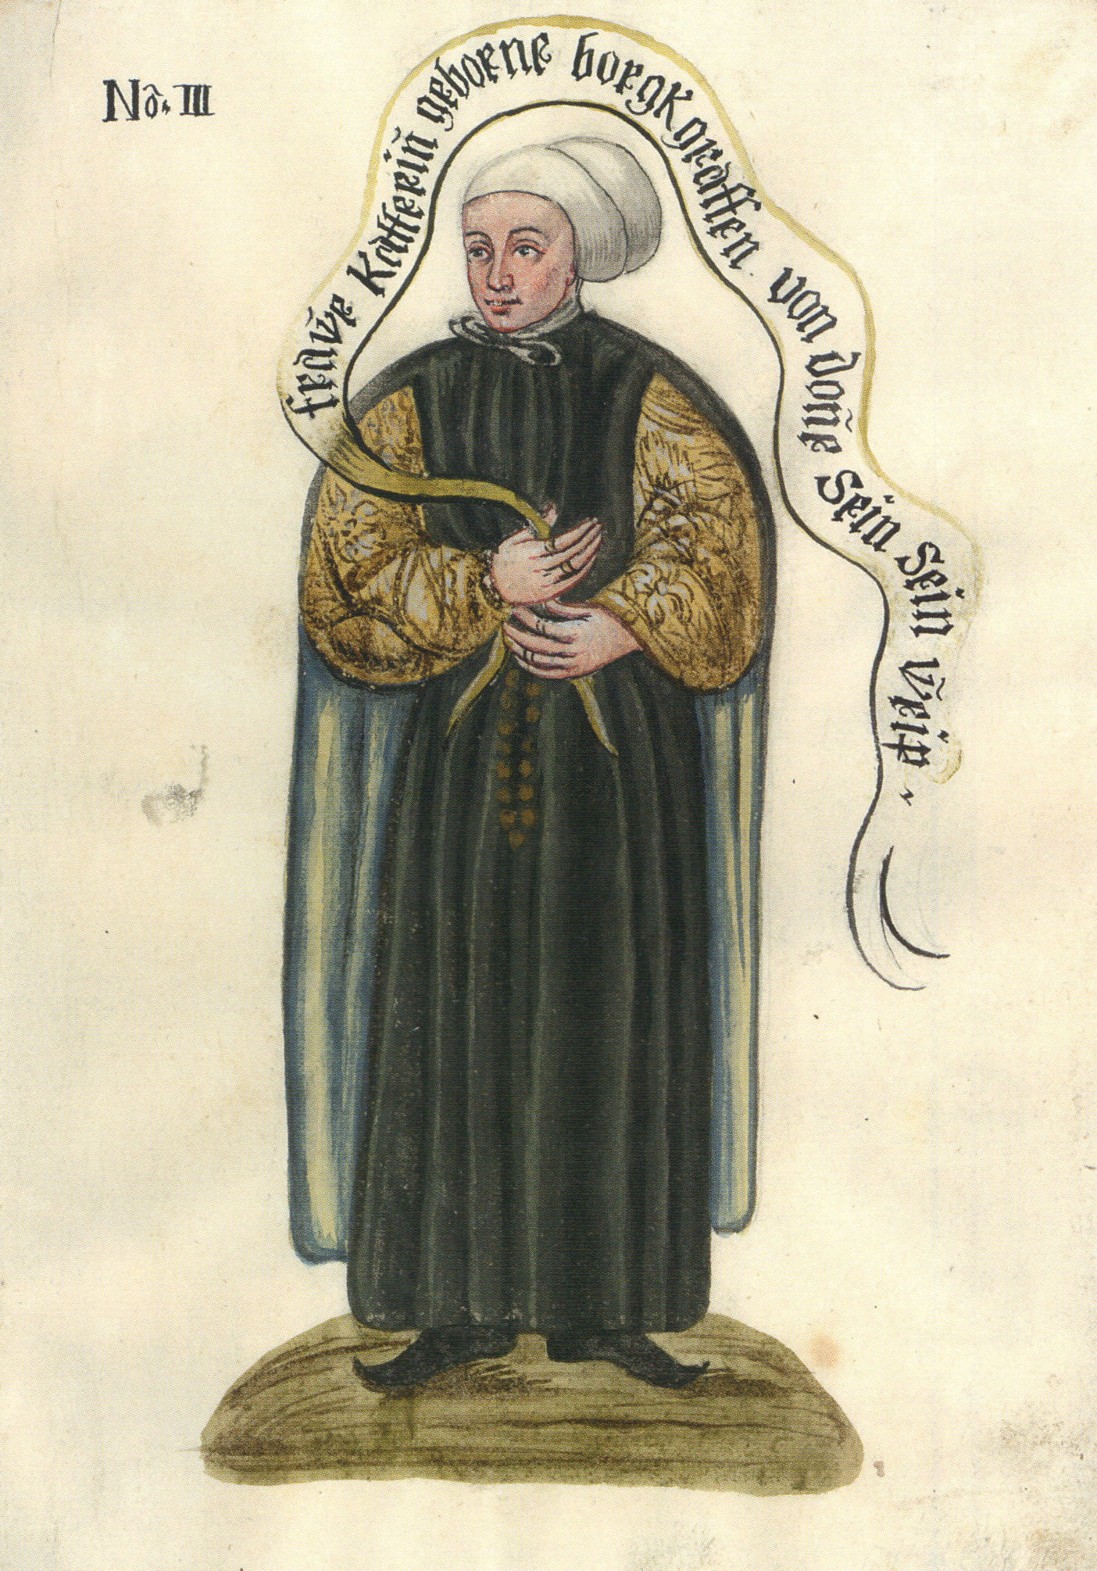 No. III
fraw̃e Katteriñ geborne borgkgraffen von doñe Sein Sein w̃eip